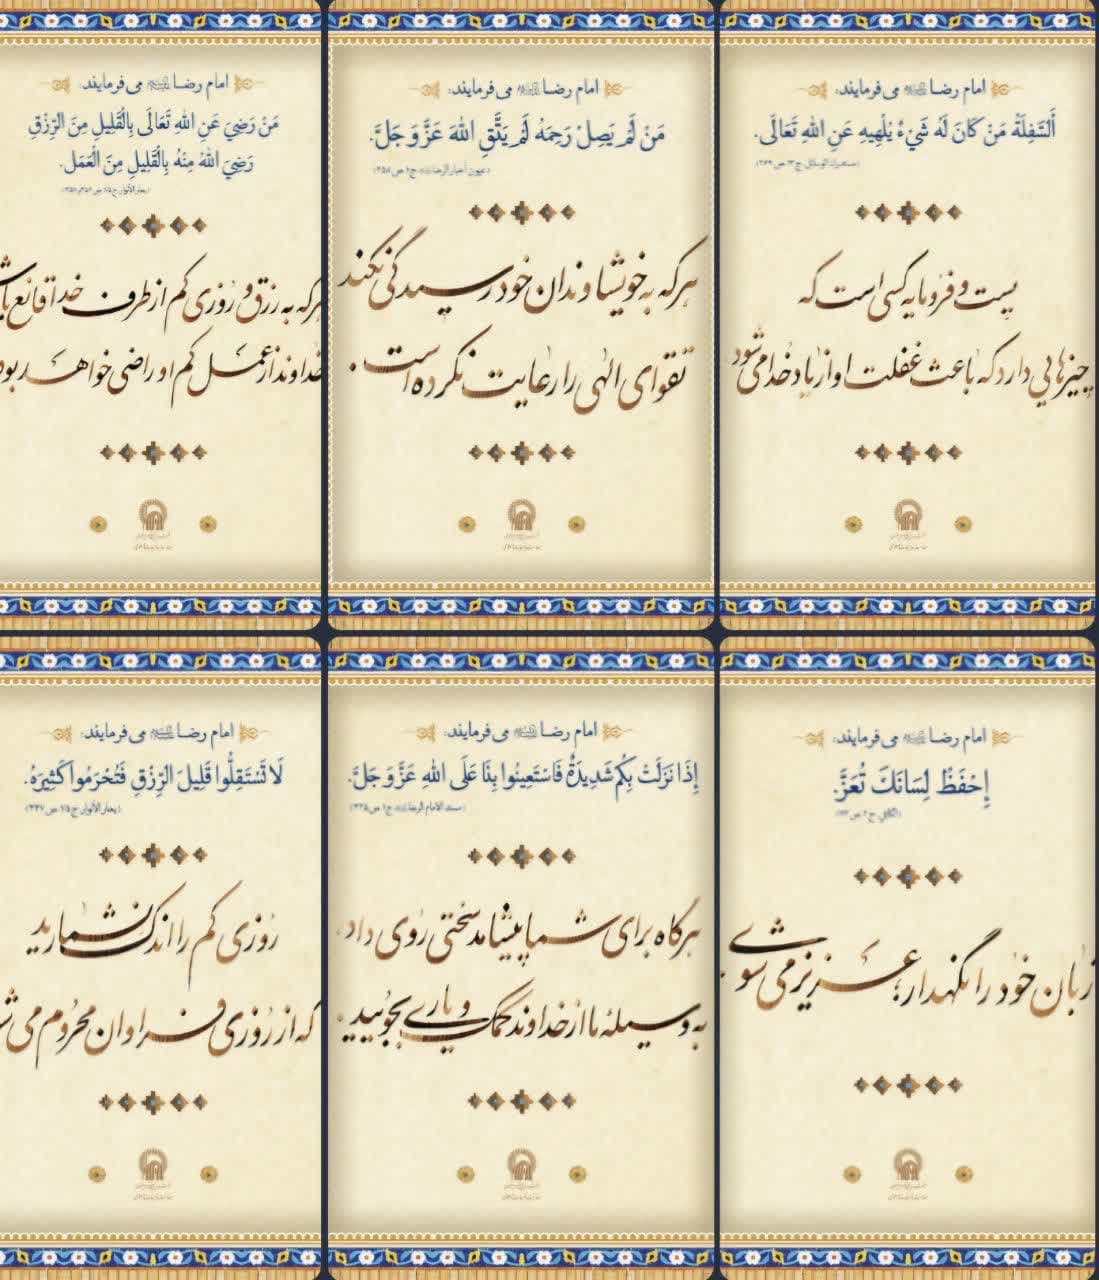 امام رضا می‌فرمایند:
أَلسَّفِلَةُ مَنْ كَانَ لَهُ شَيْءٌ يُلْهِيهِ عَنِ اللهِ تَعَالَى.
پست و فرومایه کسی است که
چیزهایی دارد که باعث غفلت او از یاد خدا می‌شود
امام رضا می‌فرمایند:
مَنْ لَمْ يَصِلْ رَحِمَهُ لَمْ يَتَّقِ اللهَ عَزَّ وَ جَلَّ.
هرکه به خویشاوندان خود رسیدگی نکند
تقوای الهی را رعایت نکرده است.
امام رضا می‌فرمایند:
مَنْ رَضِيَ عَنِ اللهِ تَعَالَى بِالْقَلِيلِ مِنَ الرِّزْقِ
رَضِيَ اللهُ مِنْهُ بِالْقَلِيلِ مِنَ الْعَمَلِ.
هرکه به رزق و روزی کم از طرف خدا قانع
خداوند از عمل کم او راضی خواهد بود
امام رضا می‌فرمایند:
إِحْفَظْ لِسَانَكَ تُعَزَّ.
زبان خود را نگهدار؛ عزیز می‌شوی
امام رضا می‌فرمایند:
إِذَا نَزَلَتْ بِكُمْ شَدِيدَةٌ فَاسْتَعِينُوا بِنَا عَلَى اللهِ عَزَّ وَ جَلَّ.
هرگاه برای شما پیشامد سختی روی داد،
به وسیلهٔ ما از خداوند کمک و یاری بجویید.
امام رضا می‌فرمایند:
لَا تَسْتَقِلُّوا قَلِيلَ الرِّزْقِ فَتُحْرَمُوا كَثِيرَهُ.
روزی کم را اندک نشمارید
که از روزی فراوان محروم می